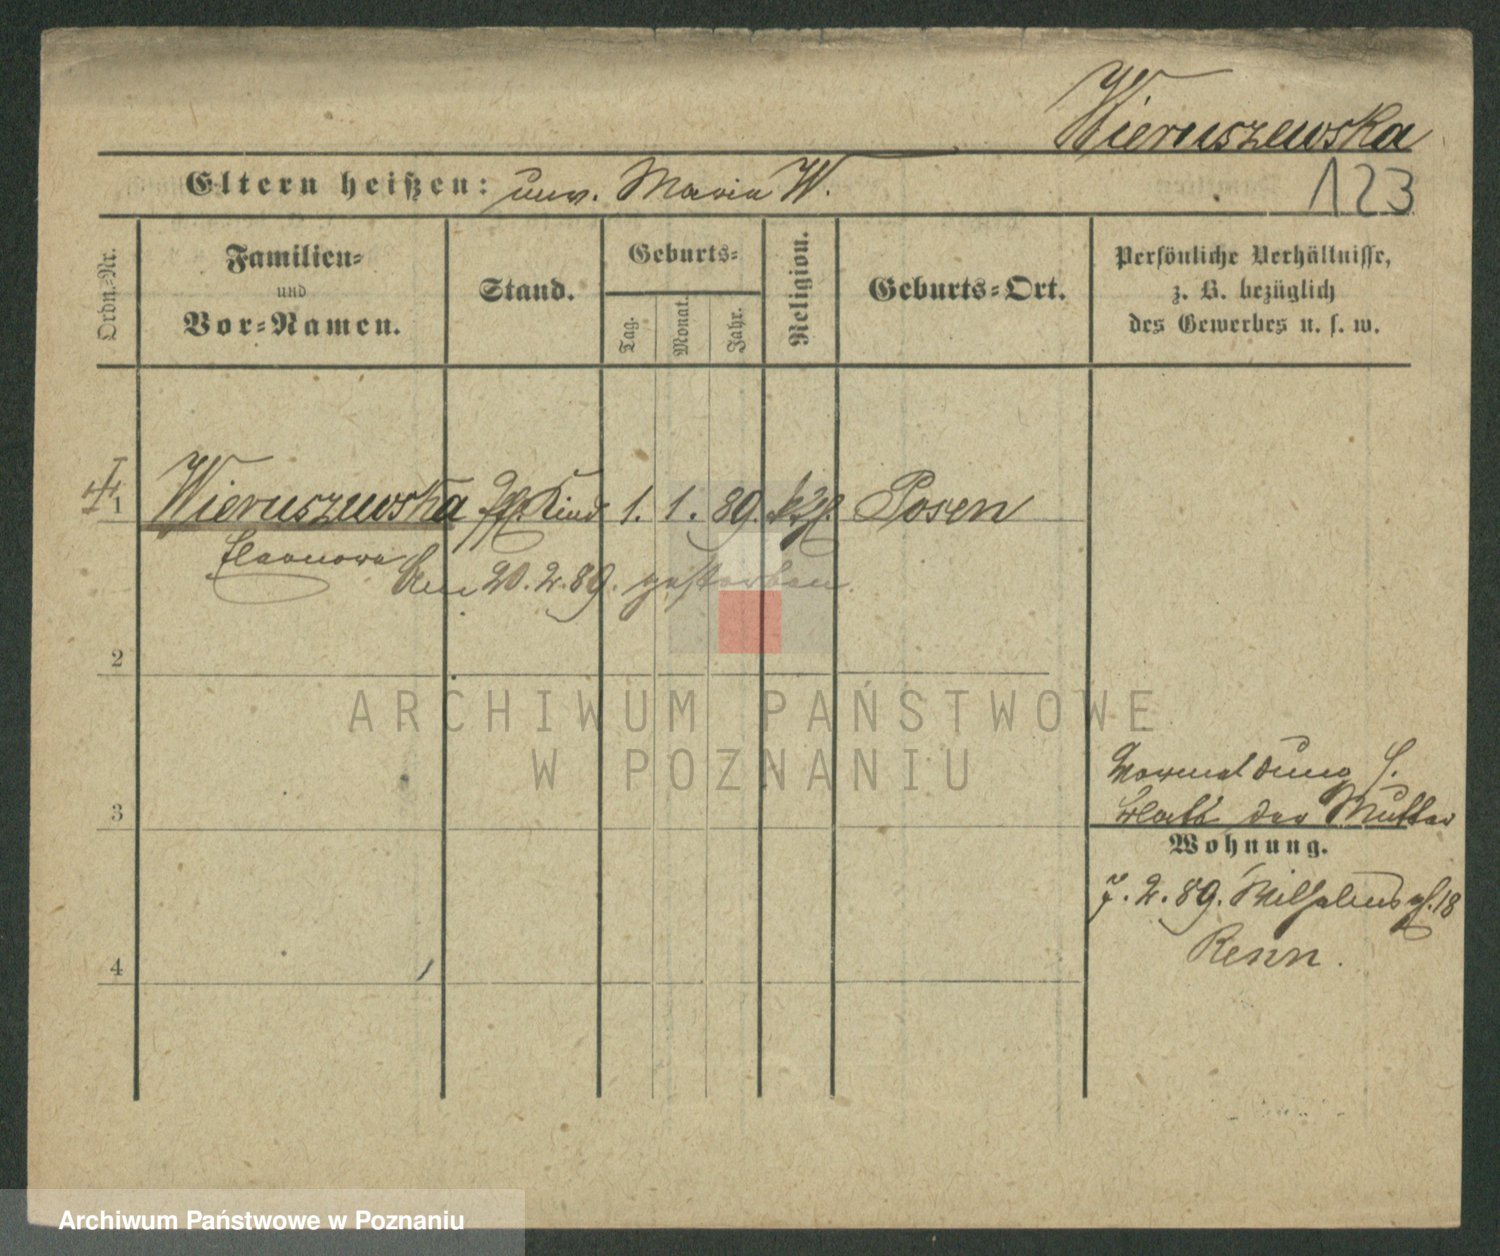 Wieruszewska
Eltern heißen: unv. Maria W.
123
Ordn.-Nr.
Familien-
und
Vor-Namen.
Stand.
Geburts-
Tag.
Monat.
Jahr.
Religion.
Geburts-Ort.
Persönliche Verhältnisse,
z. B. bezüglich
des Gewerbes u. s. w.
1 Wieruszewska Pfl. Kind 1. 1. 89. kth. Posen
Eleonora
Am 20.2.89. gestorben.
2
ARCHIWUM PAŃSTWOWE
W POZNANIU
Vormeldung s.
3
Blatt der Mutter
Wohnung.
7.2.89. Wilhelmspl. 18
Renn.
4
Archiwum Państwowe w Poznaniu